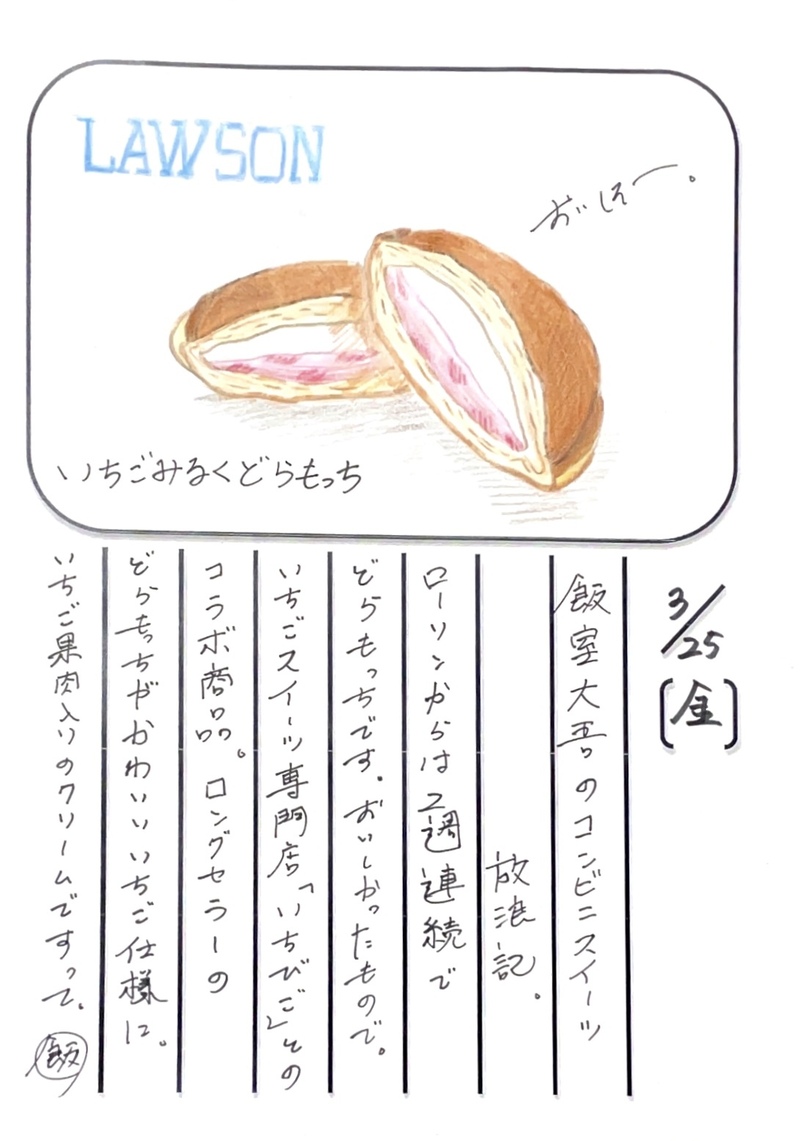 LAWSON
おいしそー。
いちごみるくどらもっち
3/25
[金]
飯室大吾のコンビニスイーツ
放浪記。
ローソンからは2週連続で
どらもっちです。おいしかったもので。
いちごスイーツ専門店「いちびご」との
コラボ商品。ロングセラーの
どらもっちがかわいいいちご仕様に。
いちご果肉入りのクリームですって。
飯